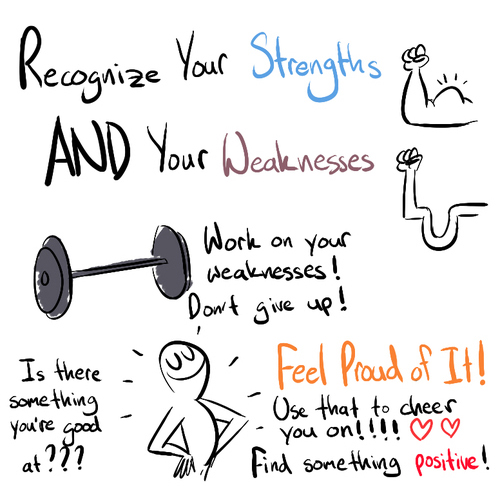 Recognize Your Strengths
AND Your Weaknesses
Work on your
weaknesses!
Don't give up!
Is there
something
you're good
at???
Feel Proud of It!
Use that to cheer
you on!!!! ♡ ♡
Find something positive!